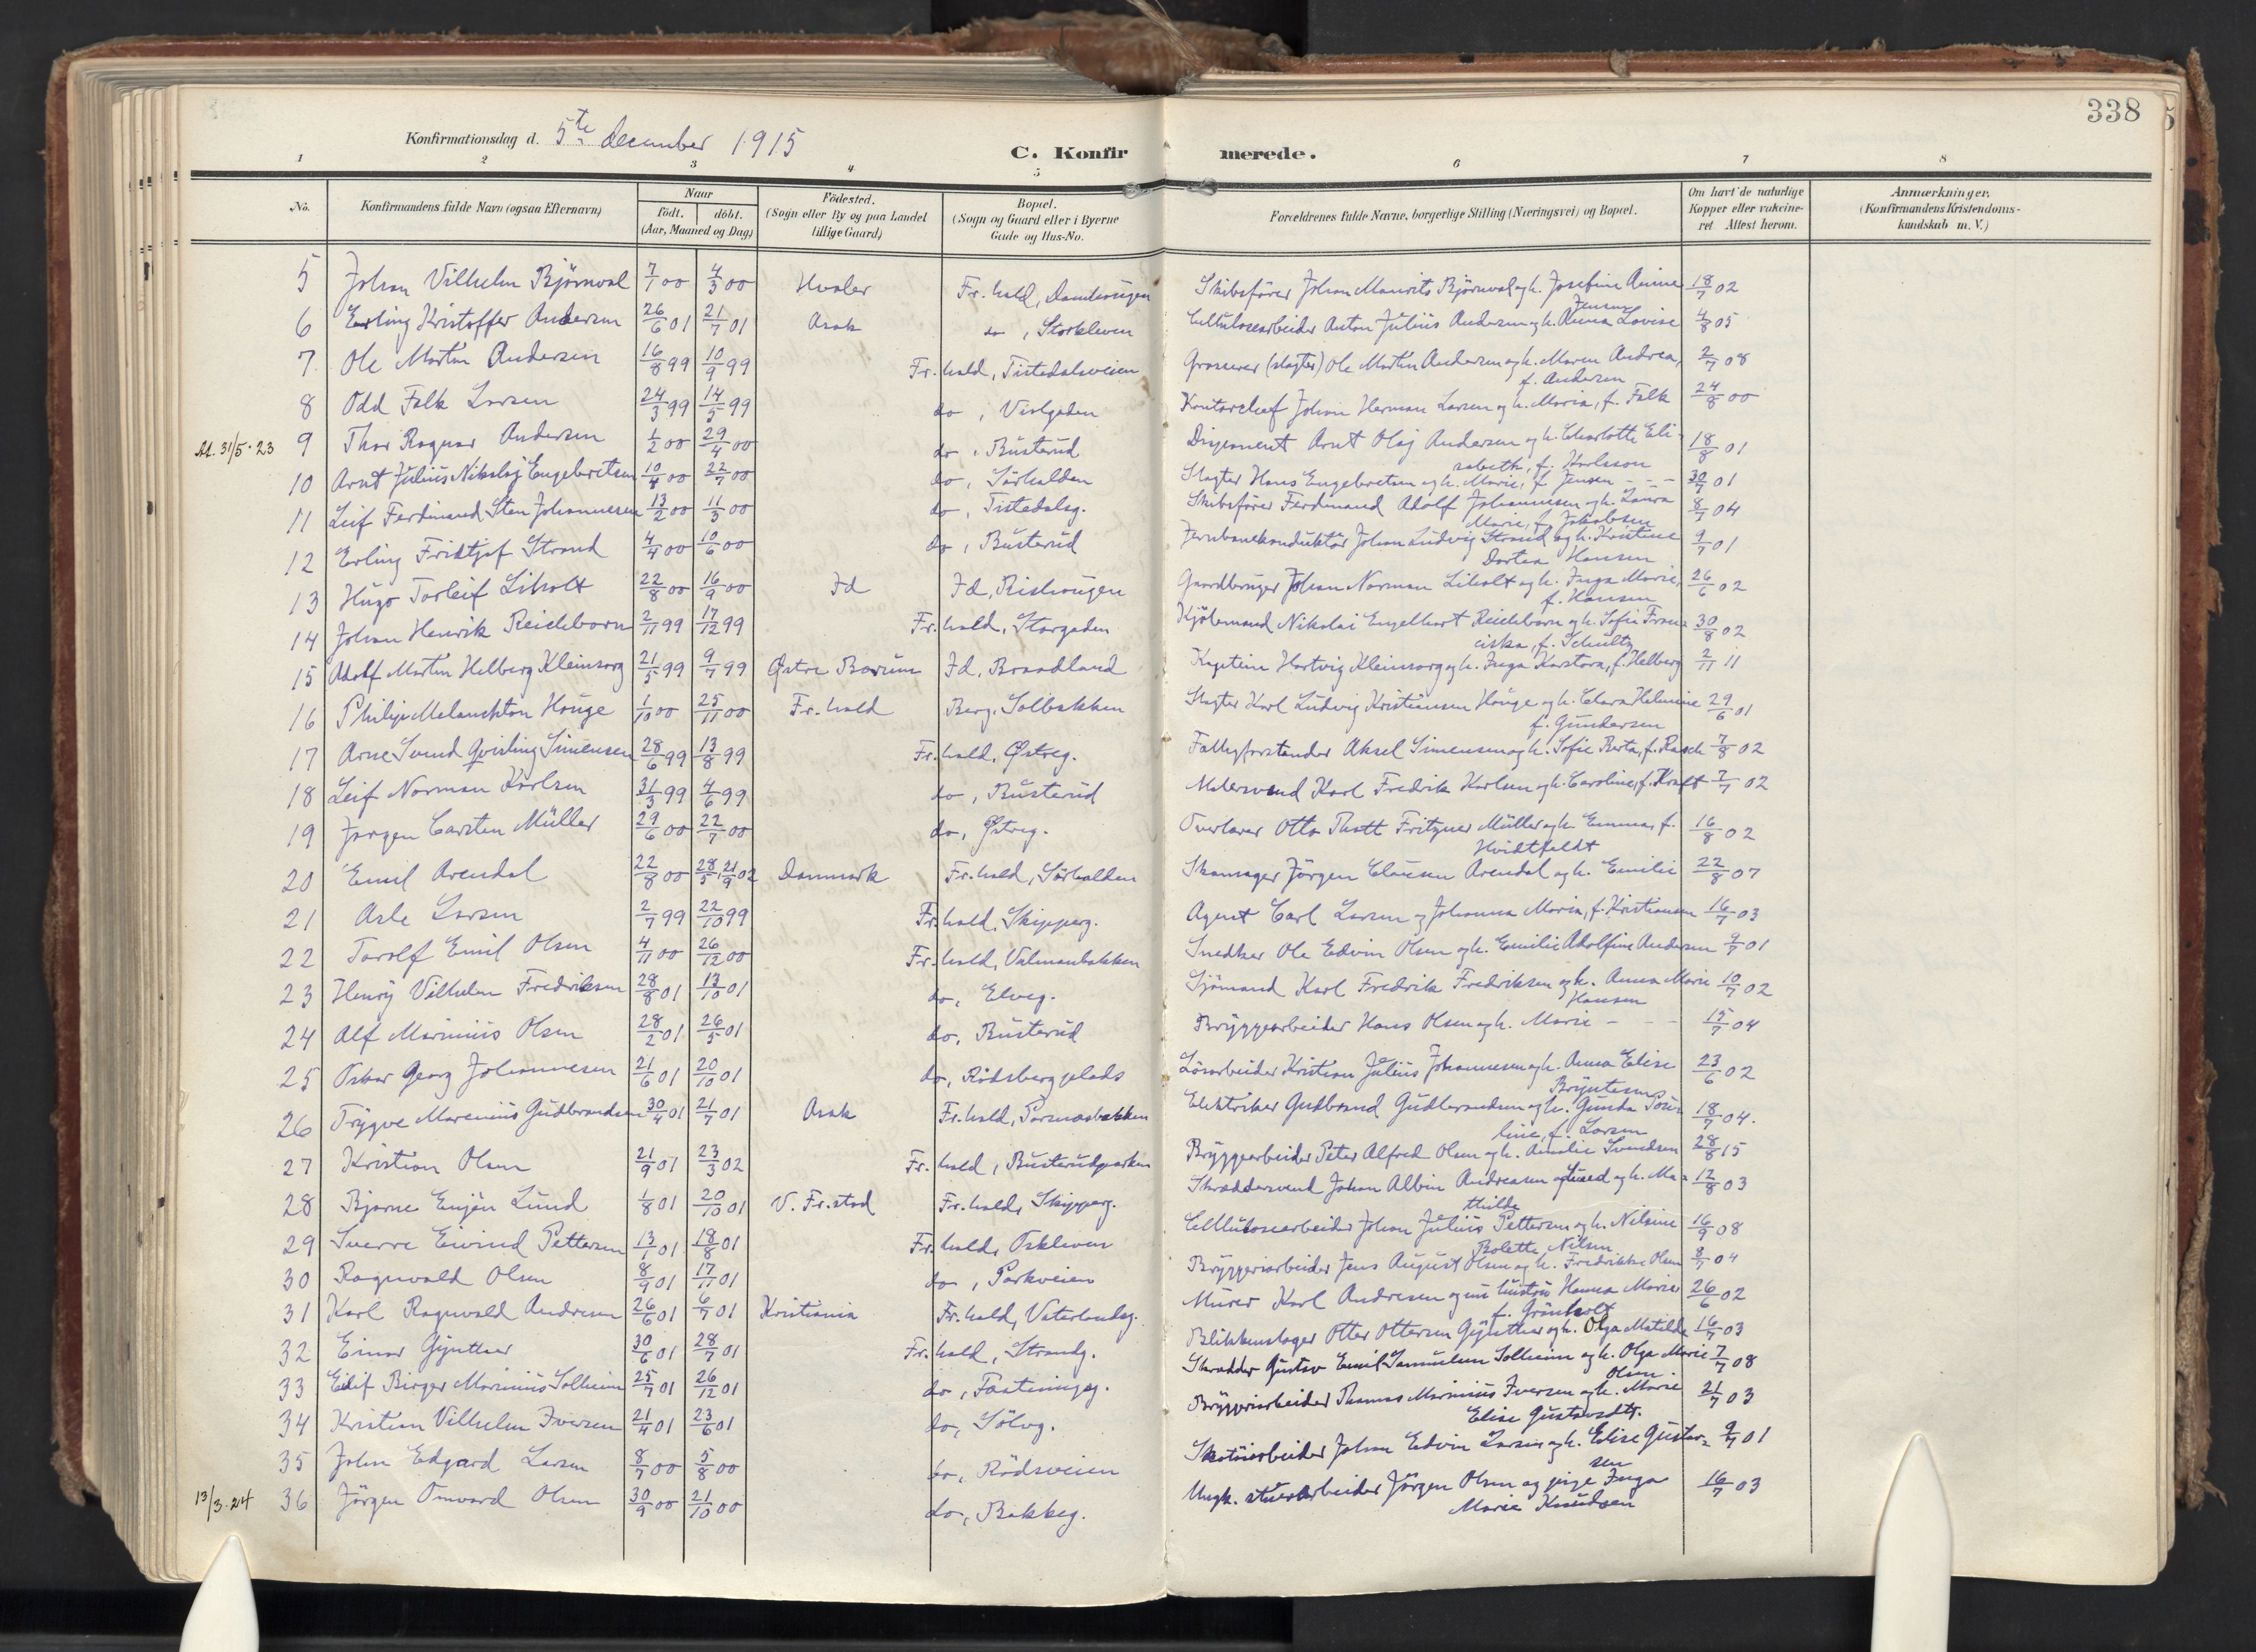 338
Konfirmationsdag d. 5te december 1915
C. Konfirmerede.
1 2 3 4 5 6 7 8
No. Konfirmandens fulde Navn (ogsaa Efternavn) Naar födt. döbt. (Aar, Maaned og Dag) Födested. (Sogn eller By og paa Landet tillige Gaard) Bopæl. (Sogn og Gaard eller i Byerne Gade og Hus-No. Forældrenes fulde Navne, borgerlige Stilling (Næringsvei) og Bopæl. Om havt de naturlige Kopper eller vakcineret Attest herom. Anmærkninger. (Konfirmandens Kristendomskundskab m. V.)
5 Johan Vilhelm Björnvol 7/1 00 4/3 00 Hvaler Fr.hald, Damhaugen Skibsförer Johan Maurits Björnvol og h. Josefine Amine Jensen 18/7 02
6 Erling Kristoffer Andersen 26/6 01 21/7 01 Asak do, Storkleven Cellulosearbeider Anton Julius Andersen og h. Anna Lovise 4/8 05
7 Ole Martin Andersen 16/8 99 10/9 99 Fr.hald, Tistedalsveien Grosserer (slagter) Ole Martin Andersen og h. Maren Andrea, f. Andersen 2/7 08
8 Odd Falk Larsen 24/3 99 14/5 99 do, Violgaden Kontorchef Johan Herman Larsen og h. Maria, f. Falk 24/8 00
31/5-23 9 Thor Ragnar Andersen 1/2 00 29/4 00 do, Busterud Disponent Arnt Olaj Andersen og h. Charlotte Elisabeth, f. Karlsson 18/8 01
10 Arnt Julius Nikolaj Engebretsen 10/4 00 22/7 00 do, Sörhalden Slagter Hans Engebretsen og h. Marie, f. Jensen - - - 30/7 01
11 Leif Ferdinand Sten Johannesen 13/2 00 11/3 00 do, Tistedalsg. Skibsförer Ferdinand Adolf Johannesen og h. Laura Marie, f. Jakobsen 8/7 04
12 Erling Fridtjof Strand 4/4 00 10/6 00 do, Busterud Jernbanekonduktör Johan Ludvig Strand og h. Kristine Dortea Hansen 9/7 01
13 Hugo Torleif Liholt 22/8 00 16/9 00 Id Id, Rishaugen Gaardbruger Johan Norman Liholt og h. Inga Marie, f. Hansen 26/6 02
14 Johan Henrik Reichborn 2/11 99 17/12 99 Fr.hald, Storgaden Kjöbmand Nikolai Engelhart Reichborn og h. Sofie Franciska, f. Schultz 30/8 02
15 Adolf Martin Helberg Kleinsorg 21/5 99 9/7 99 Østre Bærum Id, Braadland Kaptein Hartvig Kleinsorg og h. Inga Karstora, f. Helberg 2/11 11
16 Philip Melanchton Hauge 1/10 00 25/11 00 Fr.hald Berg, Solbakken Slagter Karl Ludvig Kristiansen Hauge og h. Clara Helmine f. Gundersen 29/6 01
17 Arne Svend Qvisling Simensen 28/6 99 13/8 99 Fr.hald, Østreg. Fattigforstander Aksel Simensen og h. Sofie Berta, f. Rasch 7/8 02
18 Leif Norman Karlsen 31/3 99 4/6 99 do, Busterud Malersvend Karl Fredrik Karlsen og h. Caroline, f. Kraft 7/7 02
19 Jørgen Carsten Müller 29/6 00 22/7 00 do, Østreg. Overlærer Otto Thott Fritzner Müller og h. Emma, f. Hvidtfeldt 16/8 02
20 Emil Arendal 22/8 00 28/5, 21/9 02 Danmark Fr.hald, Sörhalden Skomager Jörgen Clausen Arendal og h. Emilie 22/8 07
21 Asle Larsen 2/7 99 22/10 99 Fr.hald, Skipperg. Agent Carl Larsen og Johanna Maria, f. Kristiansen 16/7 03
22 Torolf Emil Olsen 4/11 00 26/12 00 Fr.hald, Valmanbakken Snedker Ole Edvin Olsen og h. Emilie Adolfine Andersen 9/7 01
23 Henry Vilhelm Fredriksen 28/8 01 13/10 01 do, Elveg. Sjömand Karl Fredrik Fredriksen og h. Anna Marie Hansen 10/7 02
24 Alf Marinius Olsen 28/2 01 26/5 01 do, Busterud Bryggearbeider Hans Olsen og h. Marie - - - 15/7 04
25 Oskar Georg Johannesen 21/6 01 20/10 01 do, Rödsberg plads Lösarbeider Kristian Julius Johannesen og h. Anna Elise Bryntesen 23/6 02
26 Trygve Marenius Gudbrandsen 30/4 01 21/7 01 Asak Fr.hald, Porsnæsbakken Elektriker Gudbrand Gudbrandsen og h. Gunda Pouline, f. Larsen 18/7 04.
27 Kristian Olsen 21/9 01 23/3 02 Fr.hald, Busterudparken Bryggearbeider Peter Alfred Olsen og h. Amalie Svendsen 28/8 15
28 Bjarne Eugén Lund 1/8 01 20/10 01 V. Fr.stad Fr.hald, Skipperg. Skræddersvend Johan Albin Andreasen Lund og h. Mathilde 12/8 03
29 Sverre Eivind Pettersen 13/1 01 18/8 01 Fr.hald, Oskleven Cellulosearbeider Johan Julius Pettersen og h. Nilsine Bolette Nilsen 16/9 08
30 Ragnvald Olsen 8/9 01 17/11 01 do, Parkveien Bryggeriarbeider Jens August Olsen og h. Fredrikke Olsen 8/7 04
31 Karl Ragnvald Andresen 26/6 01 6/7 01 Kristiania Fr.hald, Vaterlandsg. Murer Karl Andresen og hustru Hanna Marie f. Grönholt 26/6 02
32 Einar Gynther 30/6 01 28/7 01 Fr.hald, Strandg. Blikkenslager Otter Ottersen Gynther og h. Olga Matilde 16/7 03
33 Eilif Birger Marinius Solheim 25/7 01 26/12 01 do, Fæstningsg. Skrædder Gustav Emil Samuelsen Solheim og h. Olga Marie Olsen. 7/7 08
34 Kristian Vilhelm Iversen 21/4 01 23/6 01 do, Sölvg. Bryggeriarbeider Thomas Marinius Iversen og h. Marie Elise Gustavsdtr. 21/7 03
35 John Edgard Larsen 8/7 00 5/8 00 do, Rödsveien Skotöiarbeider Johan Edvin Larsen og h. Elise Gustavsen 9/7 01
13/3-24 36 Jörgen Omvard Olsen 30/9 00 21/10 00 do, Bakkeg. Ungk. stuerarbeider Jörgen Olsen og pige Inga Marie Knudsen 16/7 03